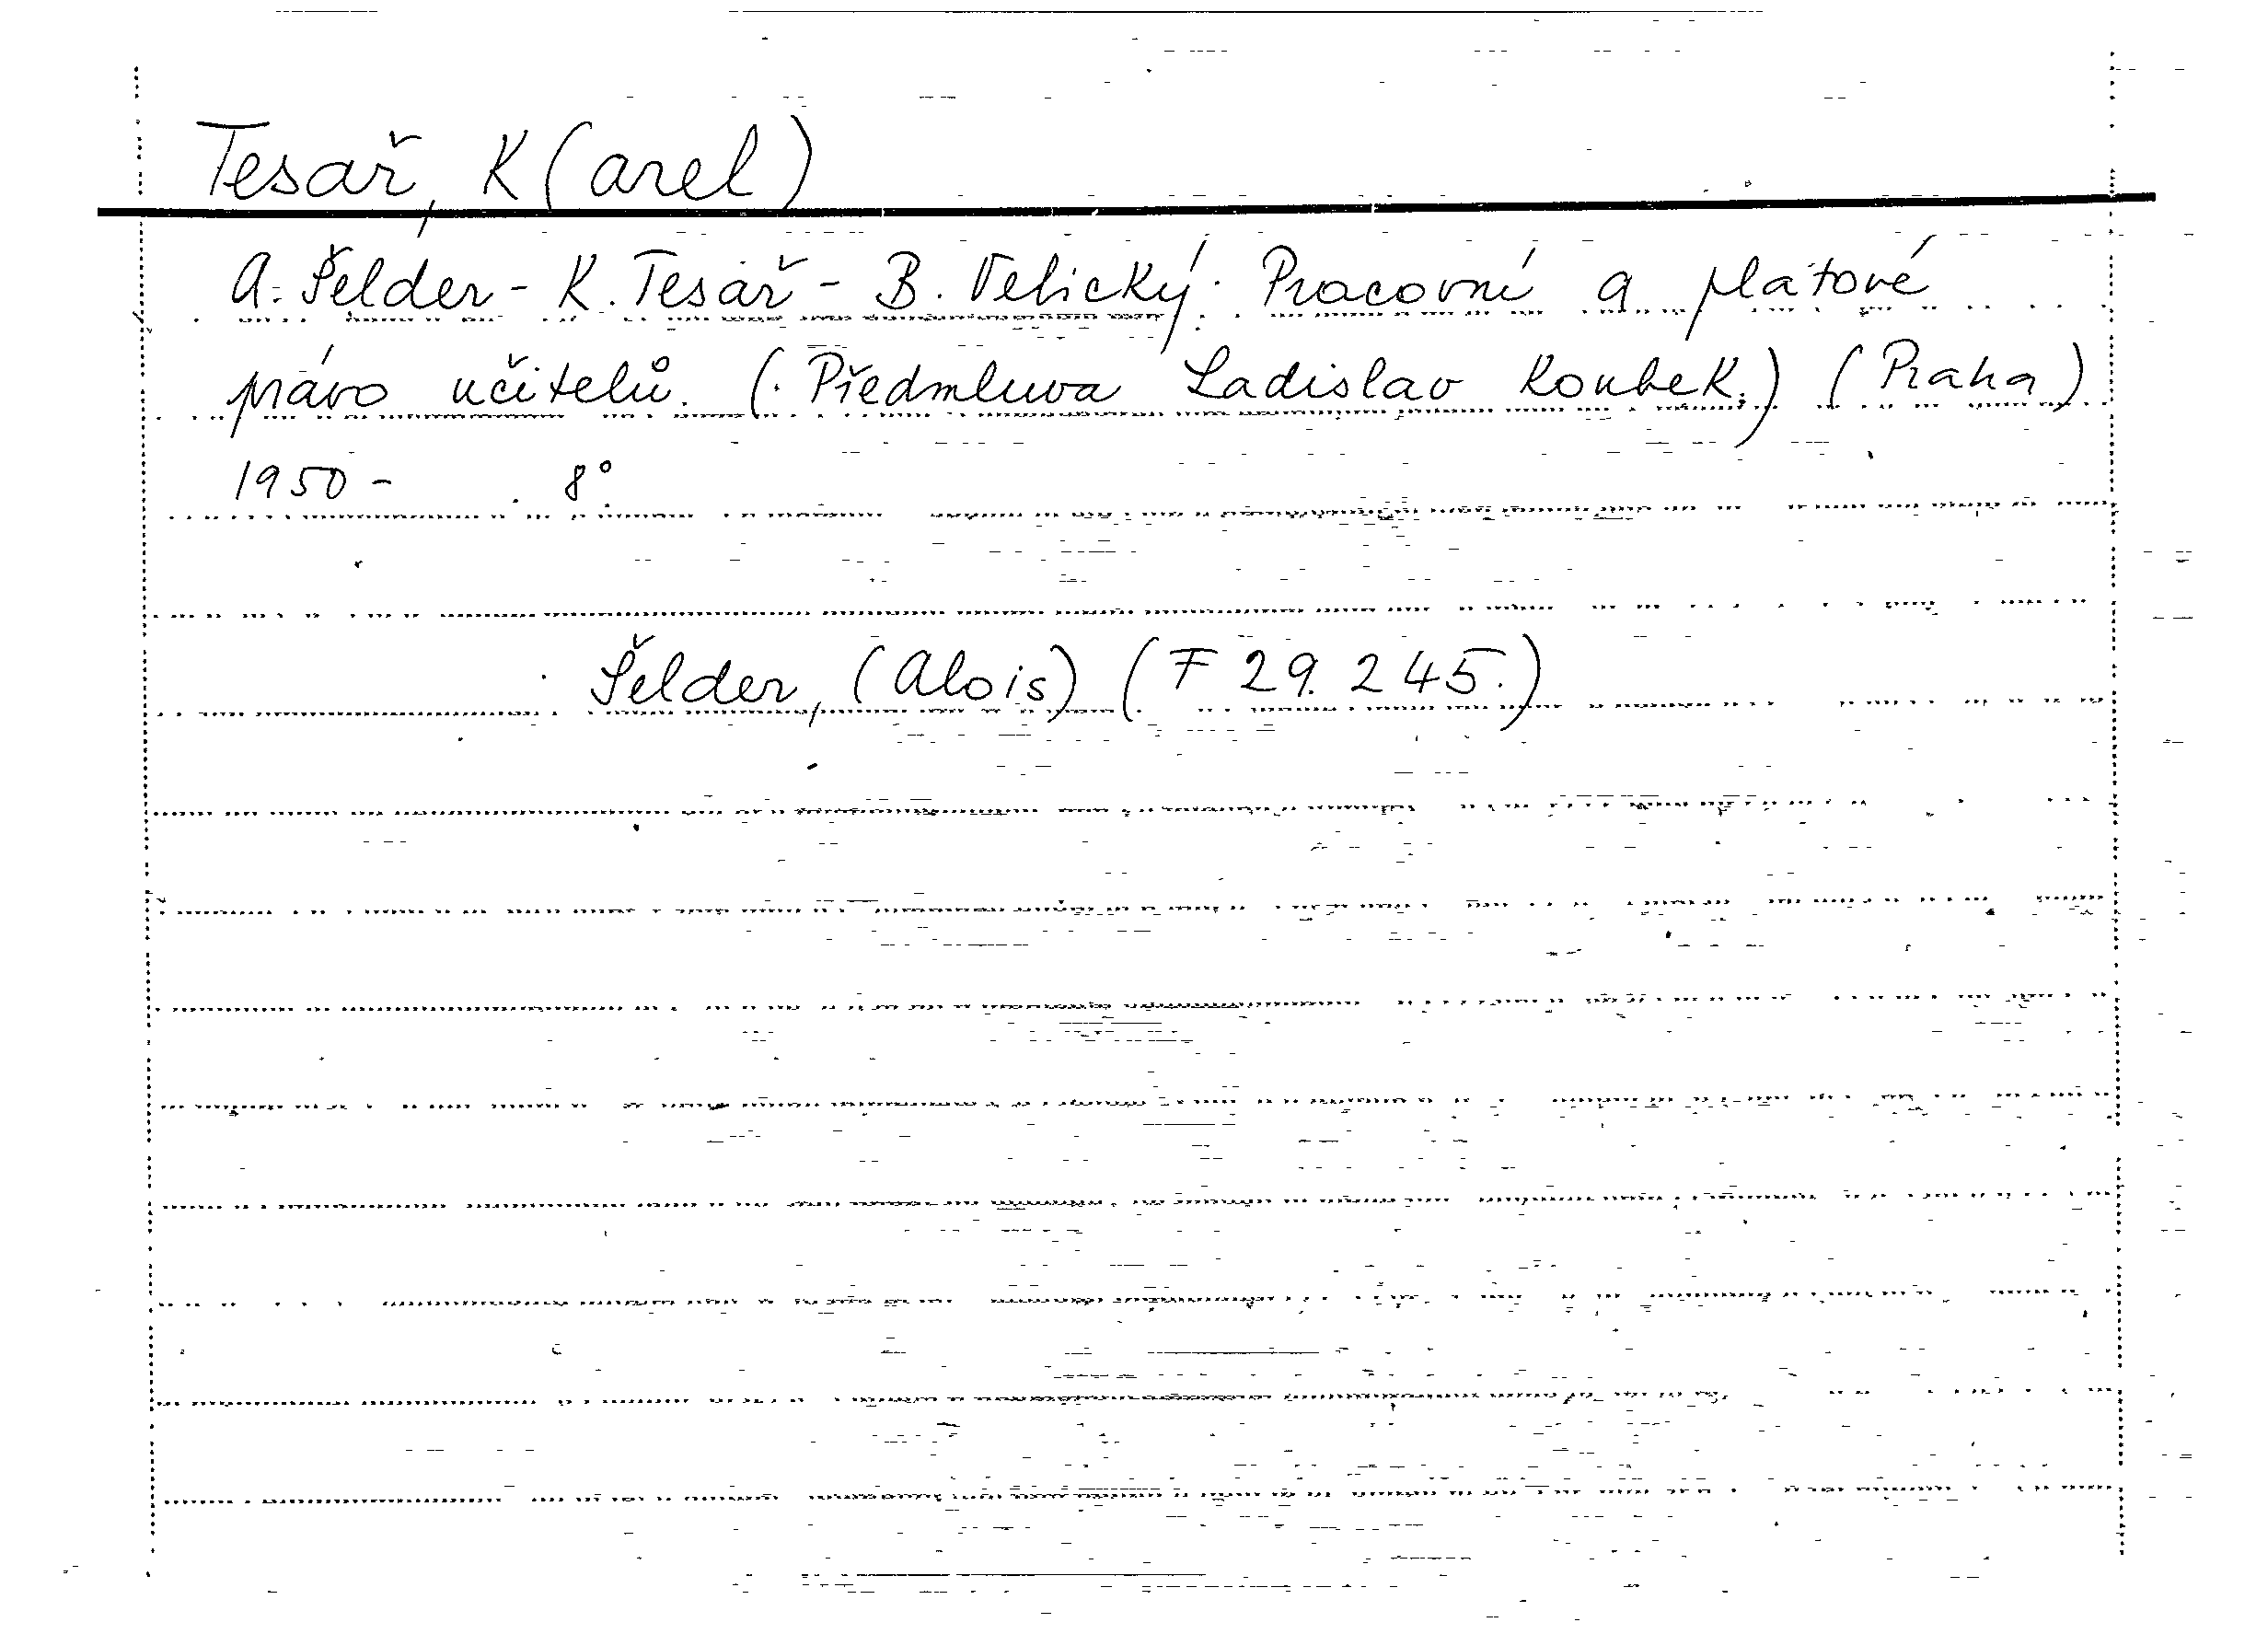 Tesař, K(arel)
A. Šelder - K. Tesař - B. Velický: Pracovní a platové
právo učitelů. (Předmluva Ladislav Koubek.) (Praha)
1950 - 8°.
Šelder, (Alois) (F 29.245.)